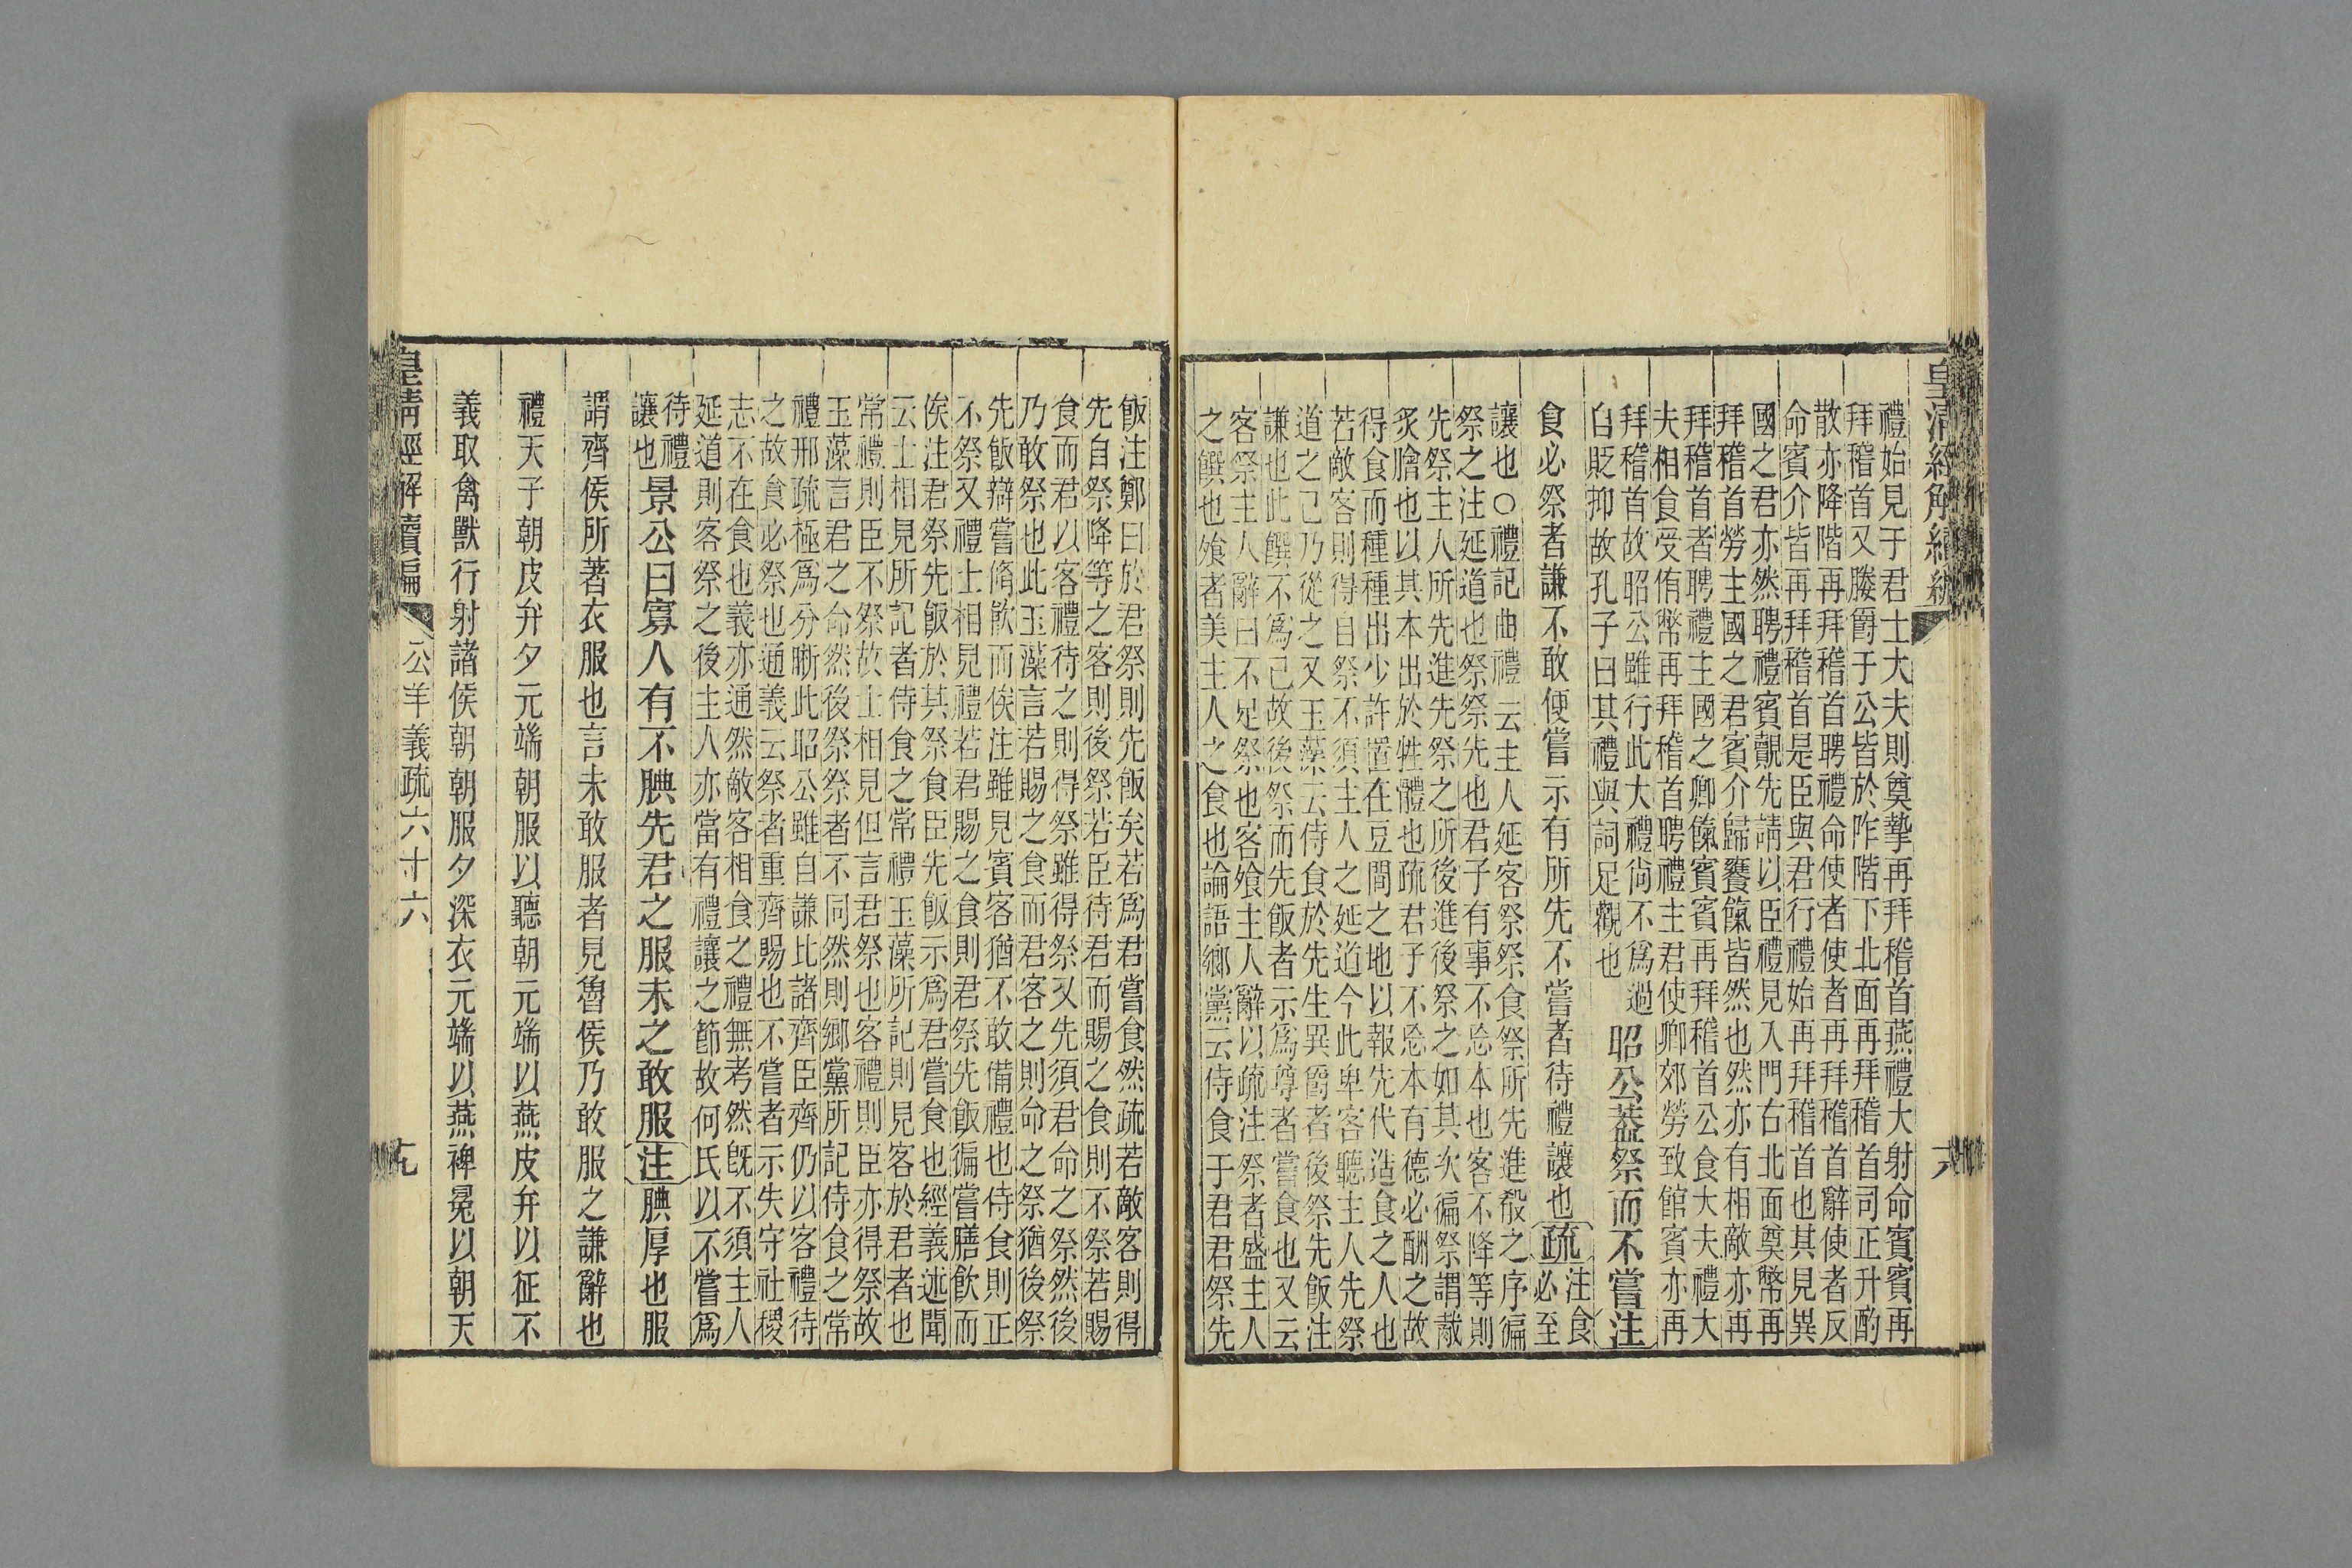 皇清經解續編
禮始見于君士大夫則奠摯再拜稽首燕禮大射命賓賓再
拜稽首又媵爵于公皆於阼階下北面再拜稽首司正升酌
散亦降階再拜稽首聘禮命使者使者再拜稽首辭使者反
命賓介皆再拜稽首是臣與君行禮始再拜稽首也其見異
國之君亦然聘禮賓覿先請以臣禮見入門右北面奠幣再
拜稽首勞主國之君賓介歸饔餼皆然也然亦有相敵亦再
拜稽首者聘禮主國之卿餼賓賓再拜稽首公食大夫禮大
夫相食受侑幣再拜稽首聘禮主君使卿郊勞致館賓亦再
拜稽首故昭公雖行此大禮尙不爲過
自貶抑故孔子曰其禮與詞足觀也
昭公葢祭而不嘗注
食必祭者謙不敢便嘗示有所先不嘗者待禮讓也疏注食
必至
讓也○禮記曲禮云主人延客祭祭食祭所先進殽之序徧
祭之注延道也祭祭先也君子有事不忘本也客不降等則
先祭主人所先進先祭之所後進後祭之如其次徧祭謂胾
炙膾也以其本出於牲體也疏君子不忘本有德必酬之故
得食而種種出少許置在豆間之地以報先代造食之人也
若敵客則得自祭不須主人之延道今此卑客聽主人先祭
道之己乃從之又玉藻云侍食於先生異爵者後祭先飯注
謙也此饌不爲己故後祭而先飯者示爲尊者嘗食也又云
客祭主人辭曰不足祭也客飧主人辭以疏注祭者盛主人
之饌也飧者美主人之食也論語鄉黨云侍食于君君祭先
飯注鄭曰於君祭則先飯矣若爲君嘗食然疏若敵客則得
先自祭降等之客則後祭若臣待君而賜之食則不祭若賜
食而君以客禮待之則得祭雖得祭又先須君命之祭然後
乃敢祭也此玉藻言若賜之食而君客之則命之祭猶後祭
先飯辯嘗脩飮而俟注雖見賓客猶不敢備禮也侍食則正
不祭又禮士相見禮若君賜之食則君祭先飯徧嘗膳飮而
俟注君祭先飯於其祭食臣先飯示爲君嘗食也經義述聞
云士相見所記者侍食之常禮玉藻所記則見客於君者也
常禮則臣不祭故士相見但言君祭也客禮則臣亦得祭故
玉藻言君之命然後祭祭者不同然則鄉黨所記侍食之常
禮邢疏極爲分晣此昭公雖自謙比諸齊臣齊仍以客禮待
之故食必祭也通義云祭者重齊賜也不嘗者示失守社稷
志不在食也義亦通然敵客相食之禮無考然旣不須主人
延道則客祭之後主人亦當有禮讓之節故何氏以不嘗爲
待禮
讓也
景公曰寡人有不腆先君之服未之敢服注腆厚也服
謂齊侯所著衣服也言未敢服者見魯侯乃敢服之謙辭也
禮天子朝皮弁夕元端朝服以聽朝元端以燕皮弁以征不
義取禽獸行射諸侯朝朝服夕深衣元端以燕裨冕以朝天
皇清經解續編
公羊義疏六十六